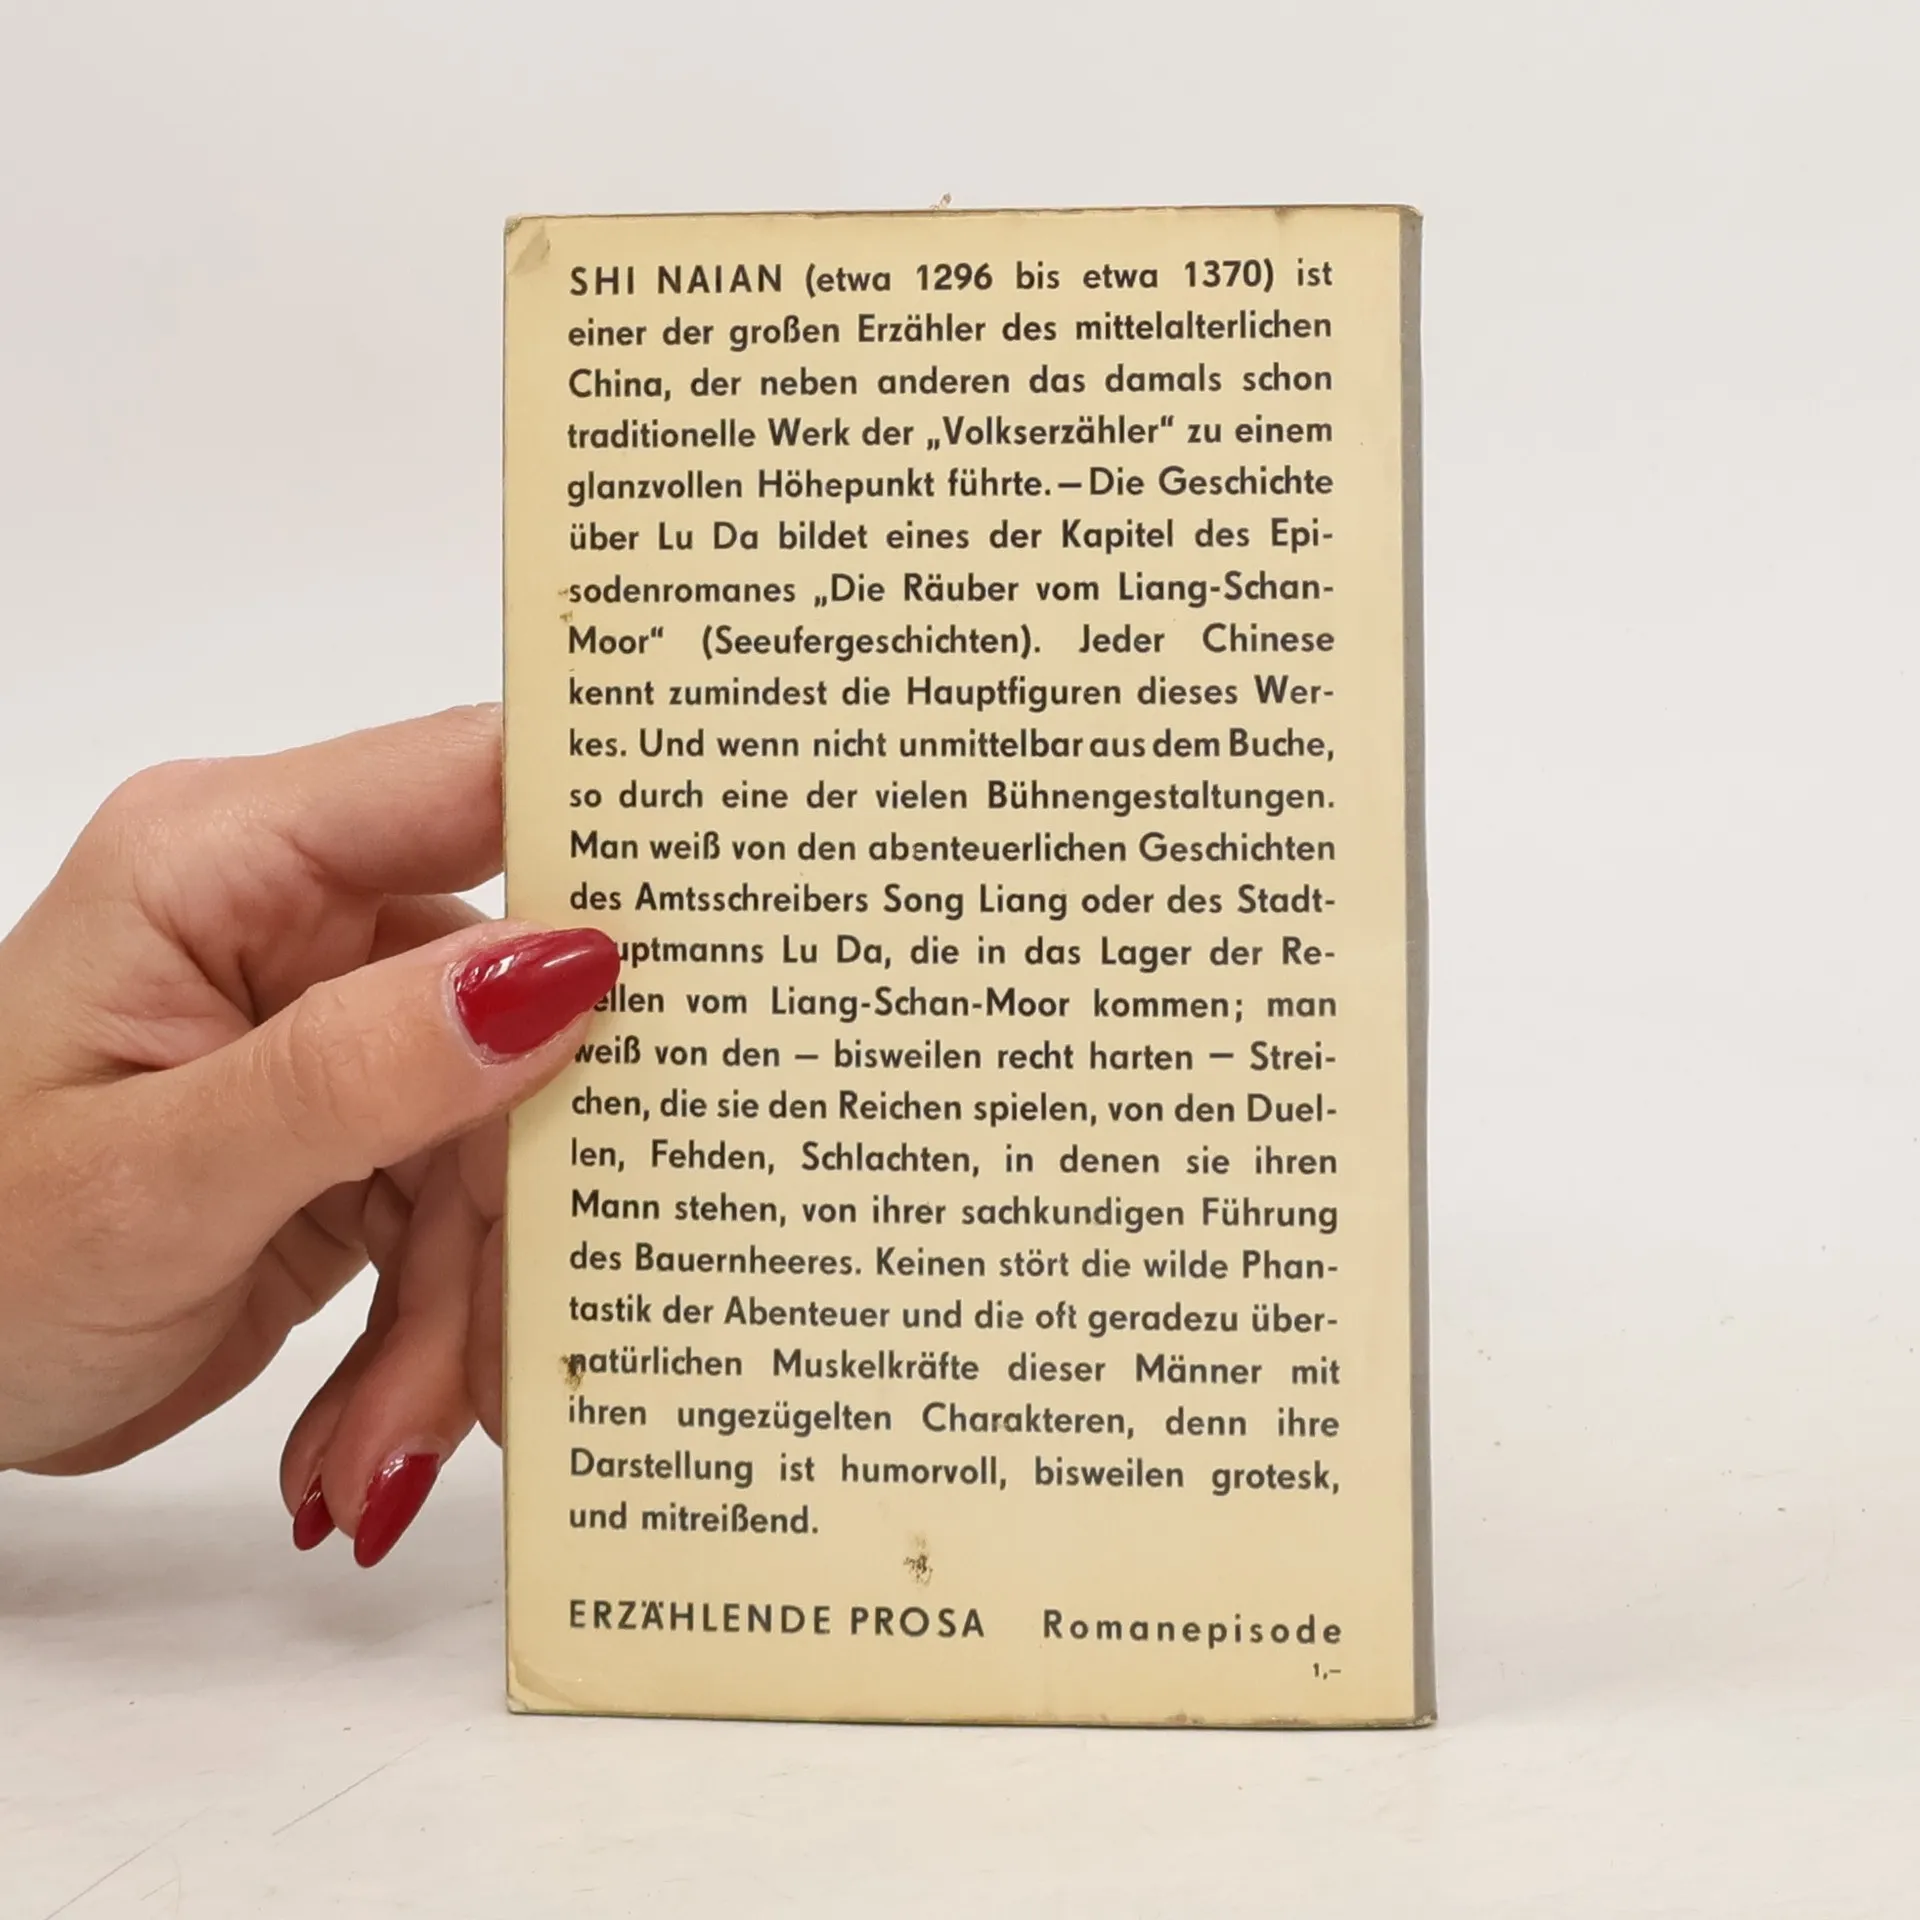 SHI NAIAN (etwa 1296 bis etwa 1370) ist
einer der großen Erzähler des mittelalterlichen
China, der neben anderen das damals schon
traditionelle Werk der „Volkserzähler“ zu einem
glanzvollen Höhepunkt führte. – Die Geschichte
über Lu Da bildet eines der Kapitel des Epi-
sodenromanes „Die Räuber vom Liang-Schan-
Moor“ (Seeufergeschichten). Jeder Chinese
kennt zumindest die Hauptfiguren dieses Wer-
kes. Und wenn nicht unmittelbar aus dem Buche,
so durch eine der vielen Bühnengestaltungen.
Man weiß von den abenteuerlichen Geschichten
des Amtsschreibers Song Liang oder des Stadt-
uptmanns Lu Da, die in das Lager der Re-
ellen vom Liang-Schan-Moor kommen; man
weiß von den – bisweilen recht harten – Strei-
chen, die sie den Reichen spielen, von den Duel-
len, Fehden, Schlachten, in denen sie ihren
Mann stehen, von ihrer sachkundigen Führung
des Bauernheeres. Keinen stört die wilde Phan-
tastik der Abenteuer und die oft geradezu über-
natürlichen Muskelkräfte dieser Männer mit
ihren ungezügelten Charakteren, denn ihre
Darstellung ist humorvoll, bisweilen grotesk,
und mitreißend.
ERZÄHLENDE PROSA Romanepisode
1,–